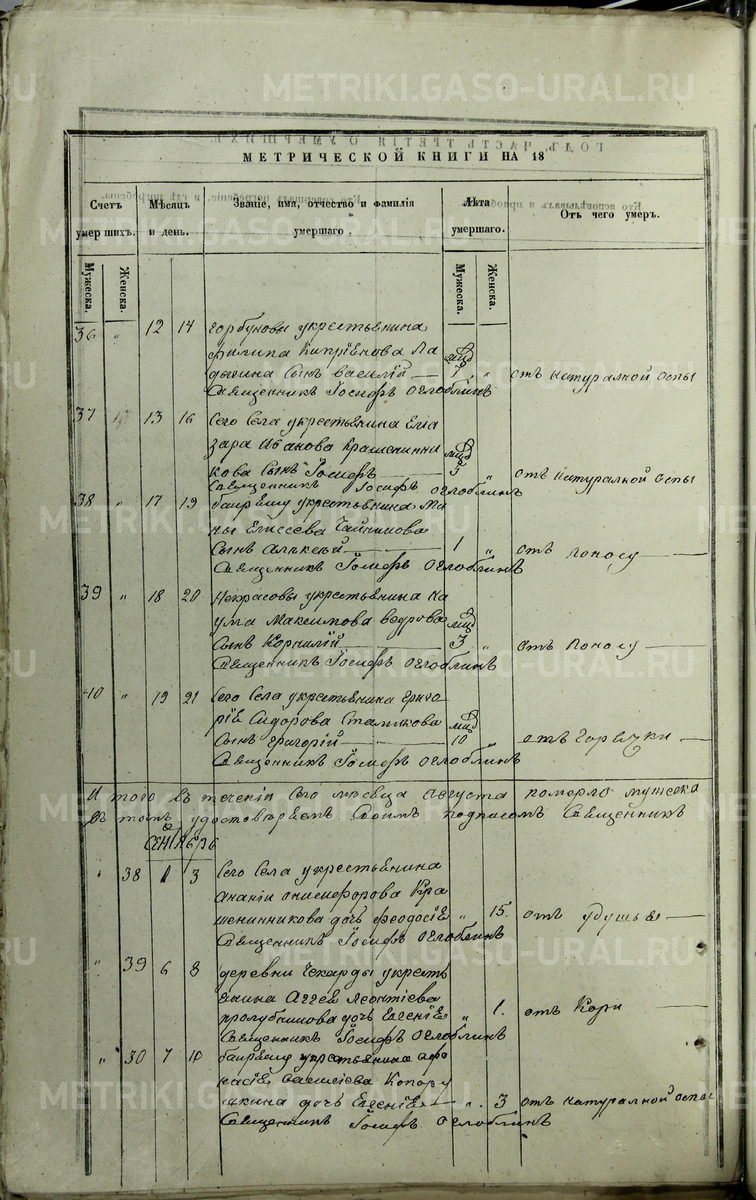 METRIKI.GASO-URAL.RU
МЕТРИЧЕСКОЙ КНИГИ НА 18
Счетъ умерших ъ.
Мѣсяцъ и день.
Званіе, имя, отчество и фамилія умершаго.
Лѣта умершаго.
Отъ чего умеръ.
Мужеска.
Женска.
Мужеска.
Женска.
36 „ 12 14 горбуновы укрестьянина
филипа Кипріянова
Сынъ василій мцв 7 „ отъ натуралной оспы
Священникъ Іосифъ Оглоблинъ
37 13 16 Сего Села укрестьянина Елиа
зара Иванова Крашенинни
кова Сынъ Іосифъ мцв 3 „ отъ натуралной оспы
Священникъ Іосифъ Оглоблинъ
38 „ 17 19 укрестьянина
ны Елисеева
Сынъ Алѣксѣй 1 „ отъ Поносу
Священникъ Іосифъ Оглоблинъ
39 „ 18 20 Некрасовы укрестьянина На
ума Максимова ведрова мцв
Сынъ Корнилій 3 „ отъ Поносу
Священникъ Іосифъ Оглоблинъ
40 „ 19 21 Сего Села укрестьянина Григо
рія Сидорова мцв
Сынъ Григорій 10 „ отъ Горячки
Священникъ Іосифъ Оглоблинъ
И того въ теченіи Сего мѣсяца августа померло мужеска
въ томъ удостовѣряемъ Своимъ подписомъ Священникъ
СЕНТЯБРЬ
„ 38 1 3 Сего Села укрестьянина
Ананіи Онисифорова Кра
шенинникова дочь Феодосія „ 15. отъ Удушья
Священникъ Іосифъ Оглоблинъ
„ 39 6 8 деревни Чекарды укресть
янина Аггея Леонтіева
дочь Евгенія „ 1. отъ Кори
Священникъ Іосифъ Оглоблинъ
„ 30 7 10 укрестьянина афо
насія Копору
шкина дочь Евгенія „ 3 отъ натуралной оспы
Священникъ Іосифъ Оглоблинъ